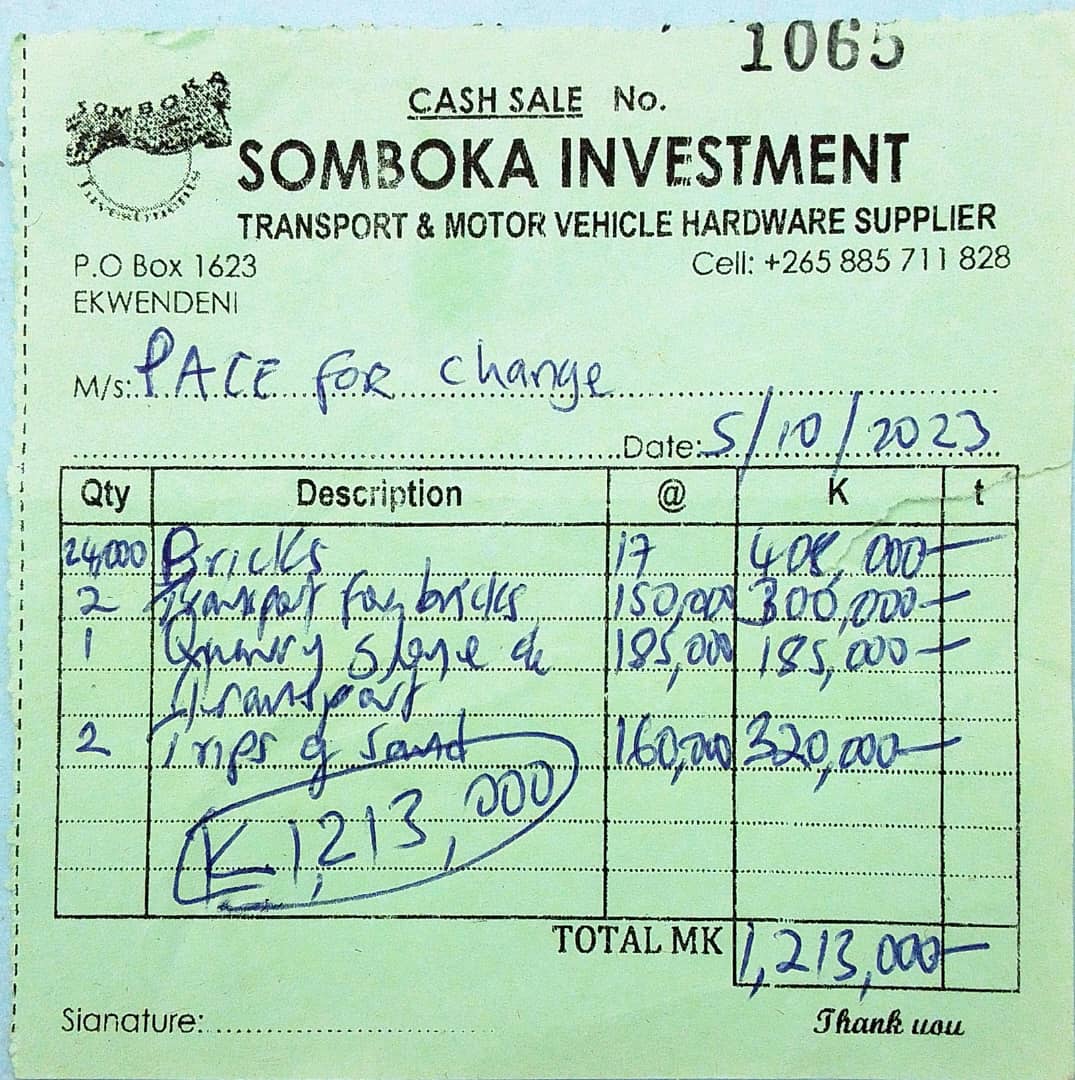 1065
CASH SALE No.
SOMBOKA
Investments
SOMBOKA INVESTMENT
TRANSPORT & MOTOR VEHICLE HARDWARE SUPPLIER
P.O Box 1623 Cell: +265 885 711 828
EKWENDENI
M/s: PACE FOR change
Date: 5/10/2023
Qty Description @ K t
24,000 Bricks 17 408,000 —
2 Transport for bricks 150,000 300,000 —
1 Quarry stone & 185,000 185,000 —
transport
2 Trips of sand 160,000 320,000 —
K1,213,000
TOTAL MK 1,213,000 —
Signature: Thank you